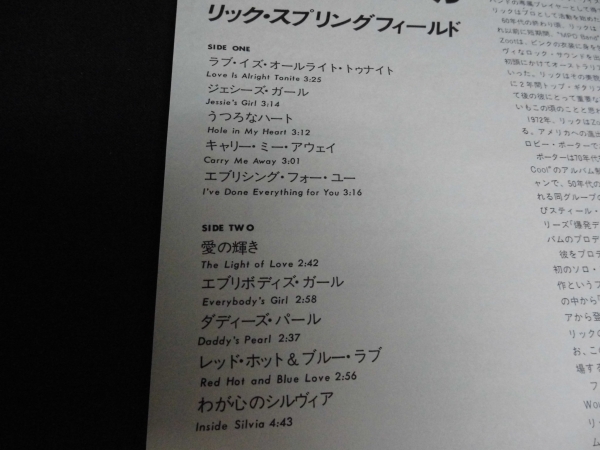 リック・スプリングフィールド
SIDE ONE
ラブ・イズ・オールライト・トゥナイト
Love Is Alright Tonite 3:25
ジェシーズ・ガール
Jessie's Girl 3:14
うつろなハート
Hole in My Heart 3:12
キャリー・ミー・アウェイ
Carry Me Away 3:01
エブリシング・フォー・ユー
I've Done Everything for You 3:16
SIDE TWO
愛の輝き
The Light of Love 2:42
エブリボディズ・ガール
Everybody's Girl 2:58
ダディーズ・パール
Daddy's Pearl 2:37
レッド・ホット&ブルー・ラブ
Red Hot and Blue Love 2:56
わが心のシルヴィア
Inside Silvia 4:43
リックはプロとして活動を始めた
60年代の終わり頃、リックは
れ以前に短期間、"MPD Band"
Zootは、ピンクの衣装に身を
ヴィなロック・サウンドを出
初頭にかけてオーストラリア
いった。リックはその季間
に2年間トップ・ギタリス
て後の彼にとって重要な
いもこの頃のことと思わ
1972年、リックはZo
る。アメリカへの進出
ロビー・ポーターで
ポーターは70年代
Cool"のアルバム
ャンで、50年代の
れる同グループの
びスティール・
リーズ「爆発デ
バムのプロデ
彼をプロデ
初のソロ・
作というフ
の中から「
アから登
リックの
お、この
場する
フ
Wor
リッ
ム